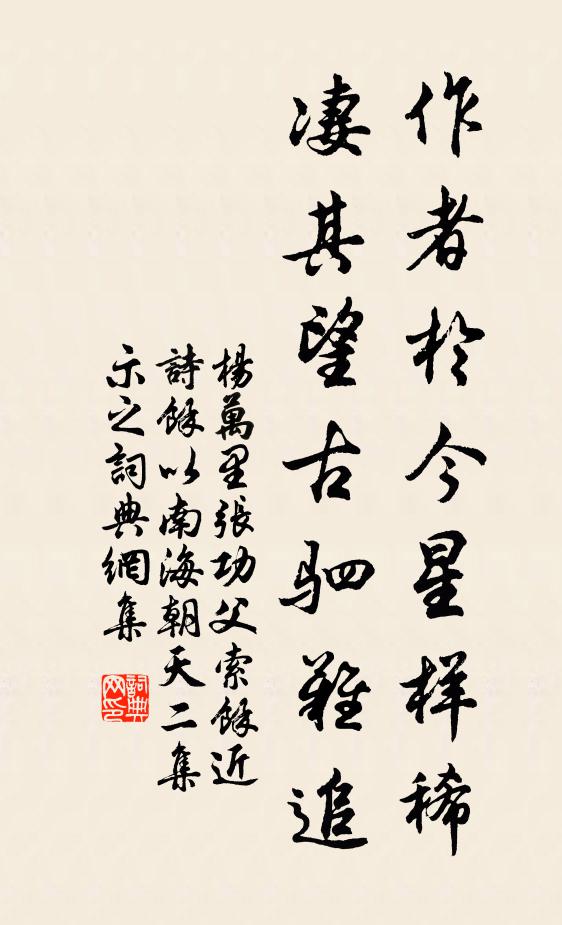 作者於今星样稀
凄其望古驷難追
楊萬里張功父索餘近
詩餘以南海朝天二集
示之詞典網集
詞典网印